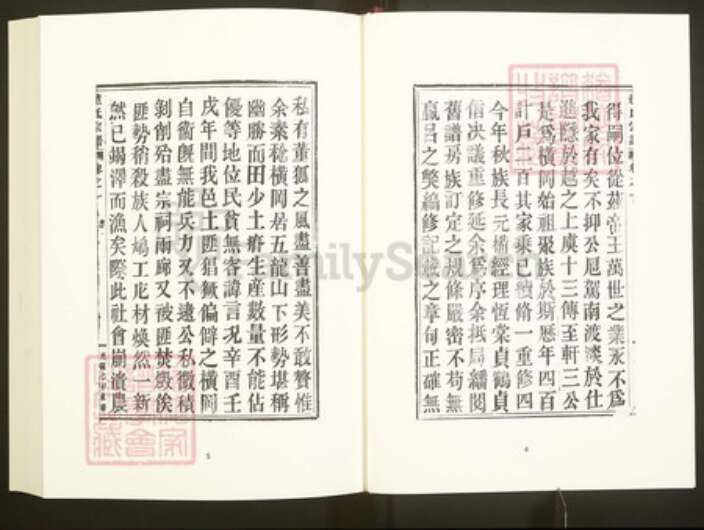 得嗣位從茲帝王萬世之業永不爲
我家有矣不抑公扈駕南渡淡於仕
進隱於越之上虞十三傳至軒三公
是爲橫岡始祖聚族於斯歷年四百
計戶二百其家乘已續脩一重修四
今年秋族長元楠經理恆棠貞鶴貞
信决議重修延余爲序余抵局繙閱
舊譜房族訂定之規條嚴密不苟無
嬴呂之獘編修記載之章句正確無
4
私有董狐之風盡善盡美不敢贅惟
余素稔橫岡居五龍山下形勢堪稱
幽勝而田少土瘠生産數量不能估
優等地位民貧無容諱言况辛酉壬
戌年間我邑土匪猖獗偏僻之橫岡
自衛旣無能兵力又不逮公私徵積
剝創殆盡宗祠兩廊又被匪焚燬俟
匪勢稍殺族人鳩工庀材煥然一新
然已竭澤而漁矣際此社會崩潰農
5
FamilySearch